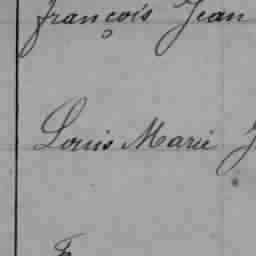 françois Jean
Louis Marie J